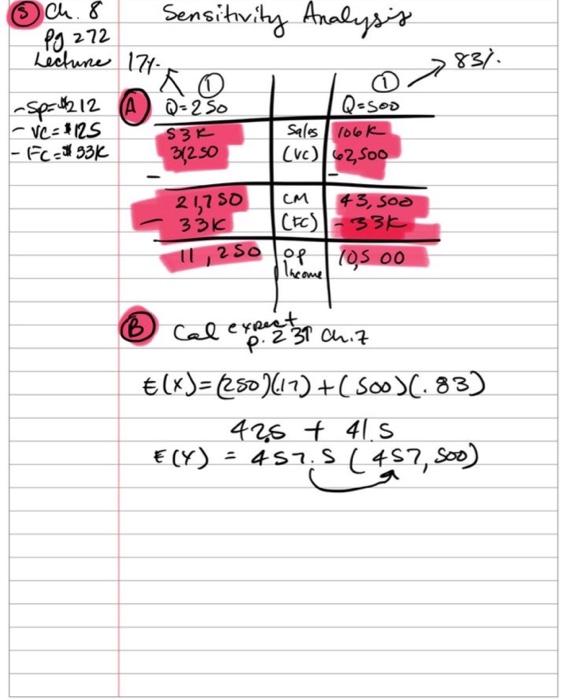 5 Ch. 8
Pg 272
Lecture
Sensitivity Analysis
17%
83%
- SP=$212
- VC=$125
- FC=$33K
A
1
Q=250
1
Q=500
53K Sales 106K
31,250 (VC) 62,500
-
-
21,750 CM 43,500
- 33K (FC) - 33K
11,250 OP Income 10,500
B Cal expect
p. 231 Ch. 7
E(X)=(250)(.17)+(500)(.83)
42.5 + 41.5
E(Y) = 457.5 (457,500)